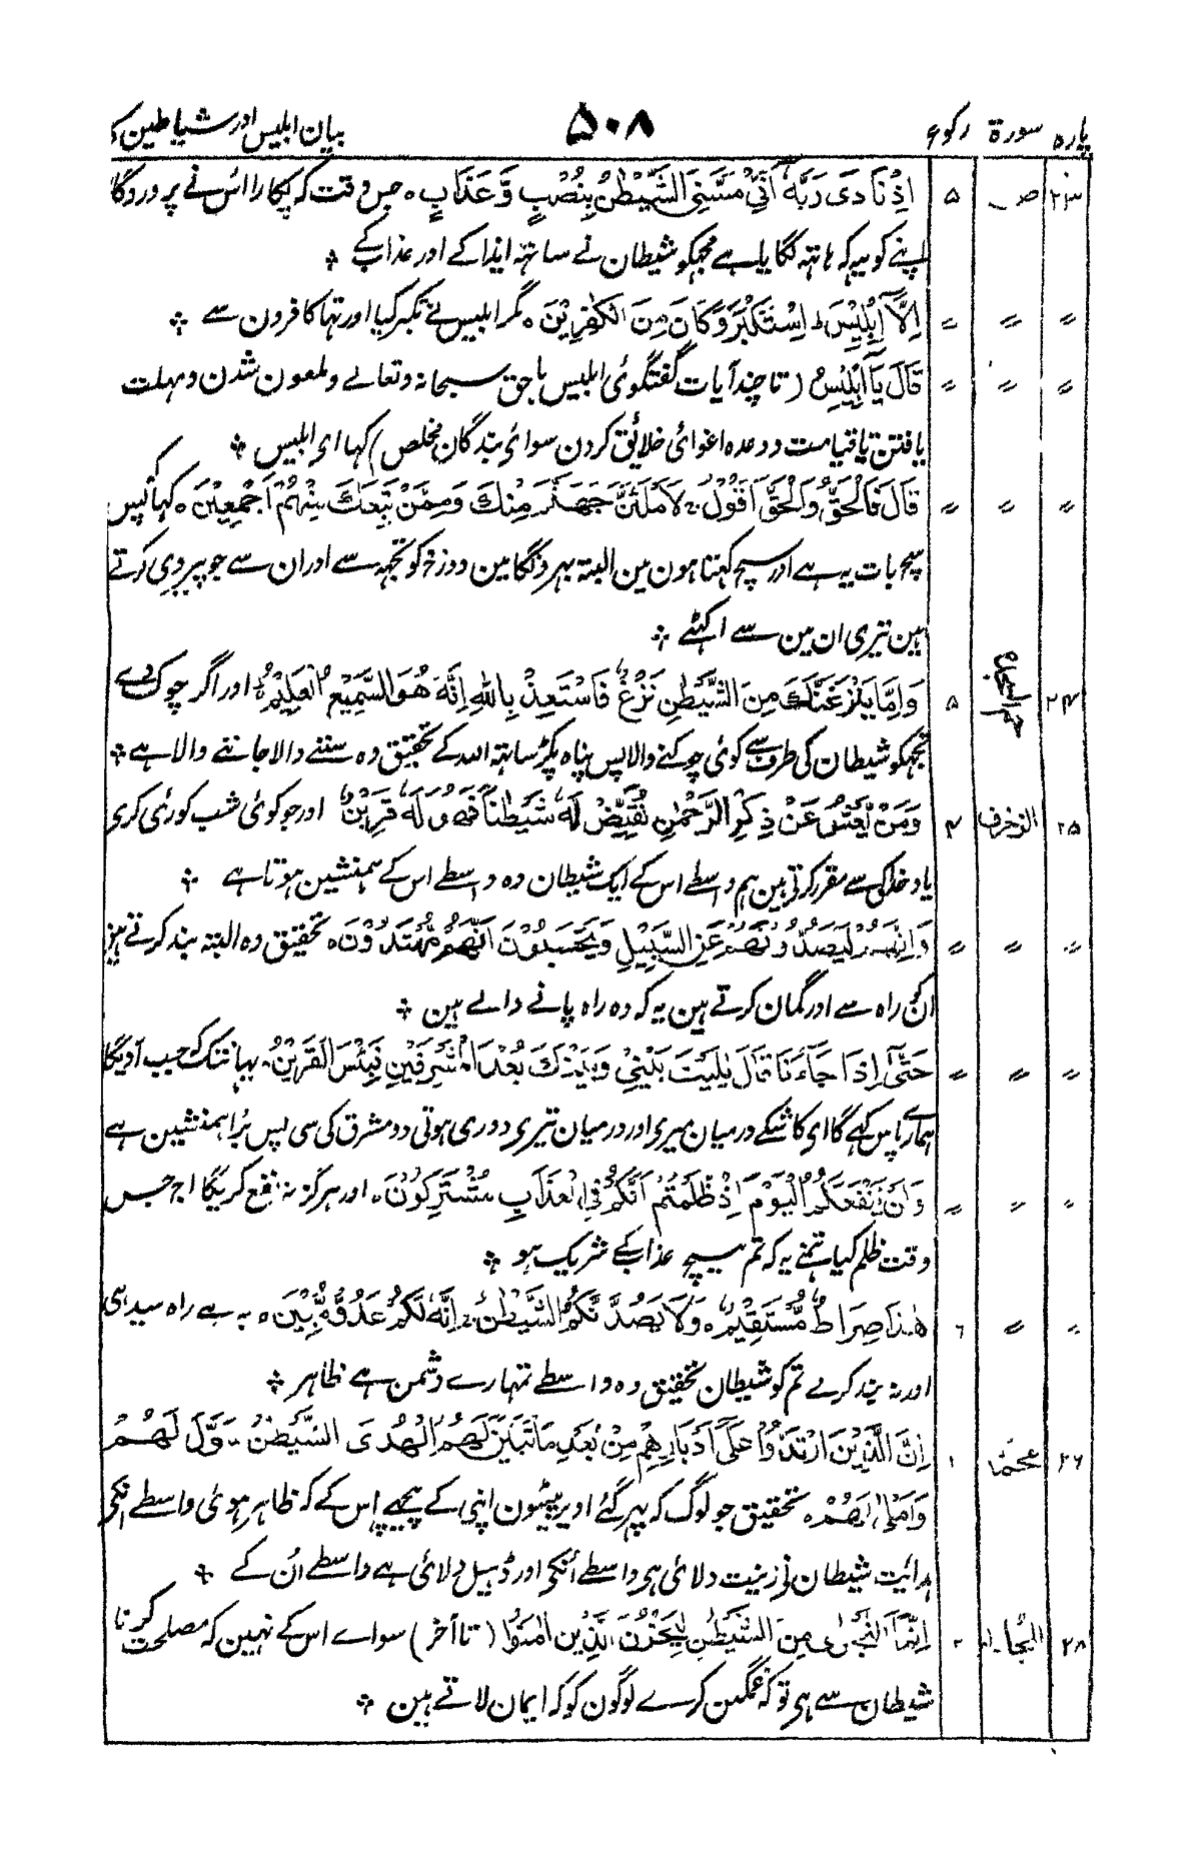 پارہ سورۃ رکوع ۵۰۸ بیان ابلیس اور شیاطین کا
۲۳ ص ۵ اِذْ نَادٰى رَبَّهٗٓ اَنِّيْ مَسَّنِيَ الشَّيْطٰنُ بِنُصْبٍ وَّعَذَابٍ ۰ جس وقت کہ پکارا اس نے پروردگا
اپنے کو یہ کہ ہاتہہ لگایا ہے مجہکو شیطان نے ساتہہ ایذا کے اور عذاب کے ⁘
〃 〃 〃 اِلَّآ اِبْلِيْسَ ؕ اِسْتَكْبَرَ وَكَانَ مِنَ الْكٰفِرِيْنَ ۰ مگر ابلیس نے تکبر کیا اور تہا کافرون سے ⁘
〃 〃 〃 قَالَ يَآ اِبْلِيْسُ (تا چند آیات گفتگوئ ابلیس با حق سبحانہ و تعالے و ملعون شدن و مہلت
یافتن تا قیامت و وعدہ اغوائ خلائق کردن سوائ بندگان مخلص) کہا ای ابلیس ⁘
〃 〃 〃 قَالَ فَالْحَقُّ وَالْحَقَّ اَقُوْلُ ۰ لَاَمْلَئَنَّ جَهَنَّمَ مِنْكَ وَمِمَّنْ تَبِعَكَ مِنْهُمْ اَجْمَعِيْنَ ۰ کہا پس
سچ بات یہ ہے اور سچ کہتا ہون مین البتہ بہرونگا مین دوزخ کو تجہہ سے اور ان سے جو پیروی کرتے
ہین تیری ان مین سے اکٹہے ⁘
۲۴ حم السجدہ ۵ وَاِمَّا يَنْزَغَنَّكَ مِنَ الشَّيْطٰنِ نَزْغٌ فَاسْتَعِذْ بِاللّٰهِ اِنَّهٗ هُوَ السَّمِيْعُ الْعَلِيْمُ ۰ اور اگر چوک دے
تجہکو شیطان کی طرف سے کوئی چوکنے والا پس پناہ پکڑ ساتہہ اللہ کے تحقیق وہ سننے والا جاننے والا ہے ⁘
۲۵ الزخرف ۴ وَمَنْ يَّعْشُ عَنْ ذِكْرِ الرَّحْمٰنِ نُقَيِّضْ لَهٗ شَيْطٰنًا فَهُوَ لَهٗ قَرِيْنٌ اور جو کوئی شب کوری کری
یاد خدا کی سے مقرر کرتی ہین ہم واسطے اس کے ایک شیطان وہ واسطے اس کے ہمنشین ہوتا ہے ⁘
〃 〃 〃 وَاِنَّهُمْ لَيَصُدُّوْنَهُمْ عَنِ السَّبِيْلِ وَيَحْسَبُوْنَ اَنَّهُمْ مُّهْتَدُوْنَ ۰ تحقیق وہ البتہ بند کرتے ہین
انکو راہ سے اور گمان کرتے ہین یہ کہ وہ راہ پانے والے ہین ⁘
〃 〃 〃 حَتّٰىٓ اِذَا جَآءَنَا قَالَ يٰلَيْتَ بَيْنِيْ وَبَيْنَكَ بُعْدَ الْمَشْرِقَيْنِ فَبِئْسَ الْقَرِيْنُ ۰ یہانتک جب آویگا
ہمارے پاس کہے گا ای کاشکے درمیان میری اور درمیان تیری دوری ہوتی دو مشرق کی سی پس برا ہمنشین ہے
〃 〃 〃 وَلَنْ يَّنْفَعَكُمُ الْيَوْمَ اِذْ ظَلَمْتُمْ اَنَّكُمْ فِي الْعَذَابِ مُشْتَرِكُوْنَ ۰ اور ہرگز نہ نفع کریگا آج جس
وقت ظلم کیا تمنے یہ کہ تم بیچ عذاب کے شریک ہو ⁘
〃 〃 ۶ هٰذَا صِرَاطٌ مُّسْتَقِيْمٌ ۰ وَلَا يَصُدَّنَّكُمُ الشَّيْطٰنُ ۰ اِنَّهٗ لَكُمْ عَدُوٌّ مُّبِيْنٌ ۰ یہ ہے راہ سیدہی
اور نہ بند کرے تم کو شیطان تحقیق وہ واسطے تمہارے دشمن ہے ظاہر ⁘
۲۶ محمد ۱ اِنَّ الَّذِيْنَ ارْتَدُّوْا عَلٰٓى اَدْبَارِهِمْ مِنْ بَعْدِ مَا تَبَيَّنَ لَهُمُ الْهُدَى الشَّيْطٰنُ سَوَّلَ لَهُمْ
وَاَمْلٰى لَهُمْ ۰ تحقیق جو لوگ کہ پہر گئے اوپر پیٹہون اپنی کے پیچہے اس کے کہ ظاہر ہوئی واسطے انکی
ہدائت شیطان نی زینت دلائی ہی واسطے انکی اور ڈہیل دلائی ہے واسطے اُن کے ⁘
۲۸ المجادلہ ۲ اِنَّمَا النَّجْوٰى مِنَ الشَّيْطٰنِ لِيَحْزُنَ الَّذِيْنَ اٰمَنُوْا (تا آخر) سواے اس کے نہین کہ مصلحت کرنا
شیطان سے ہی تو کہ غمگین کرے لوگون کو کہ ایمان لاتے ہین ⁘